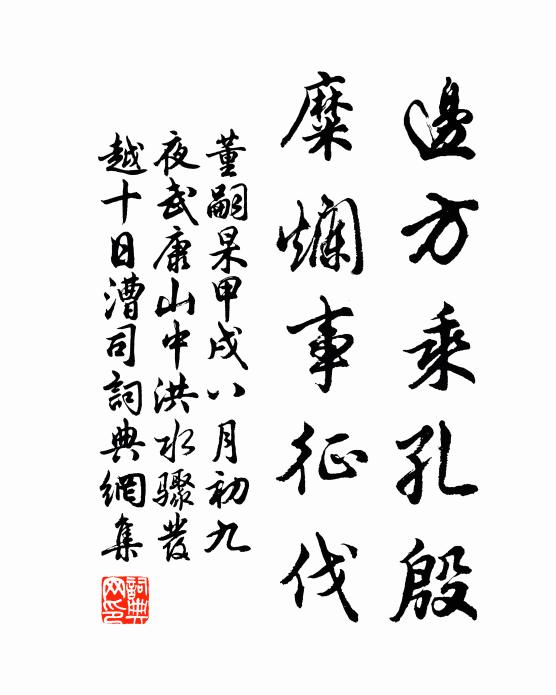 邊方乘孔殷
糜爛事征伐
董嗣杲甲戌八月初九
夜武康山中洪水驟發
越十日漕司詞典網集
詞典網印